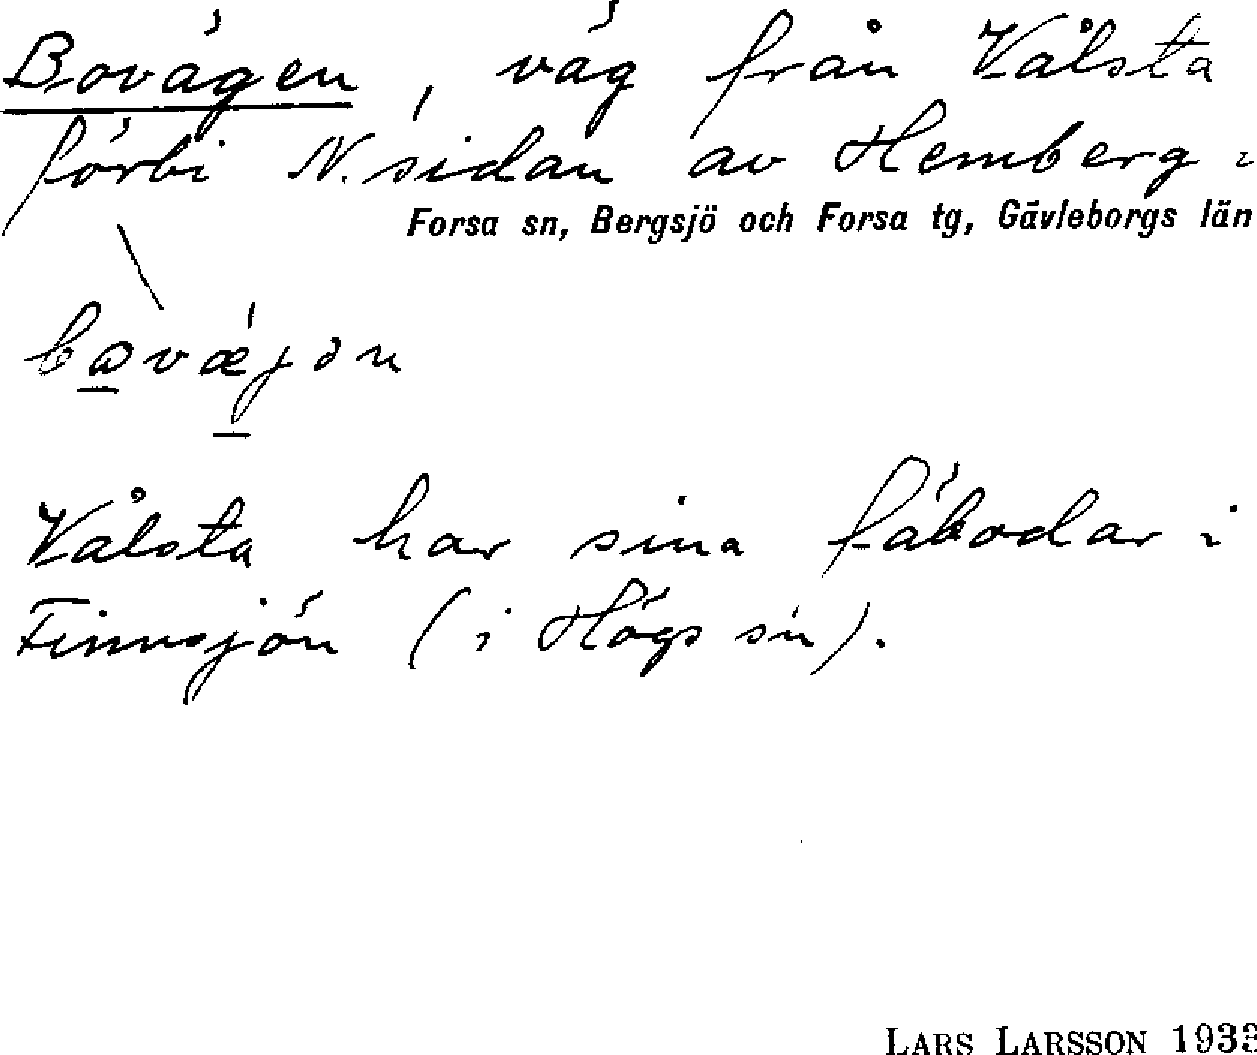 Bovägen, väg från Vålsta
förbi N. sidan av Hemberg =
Forsa sn, Bergsjö och Forsa tg, Gävleborgs län
Vålsta har sina fäbodar i
Finnsjön (i Högs sn).
LARS LARSSON